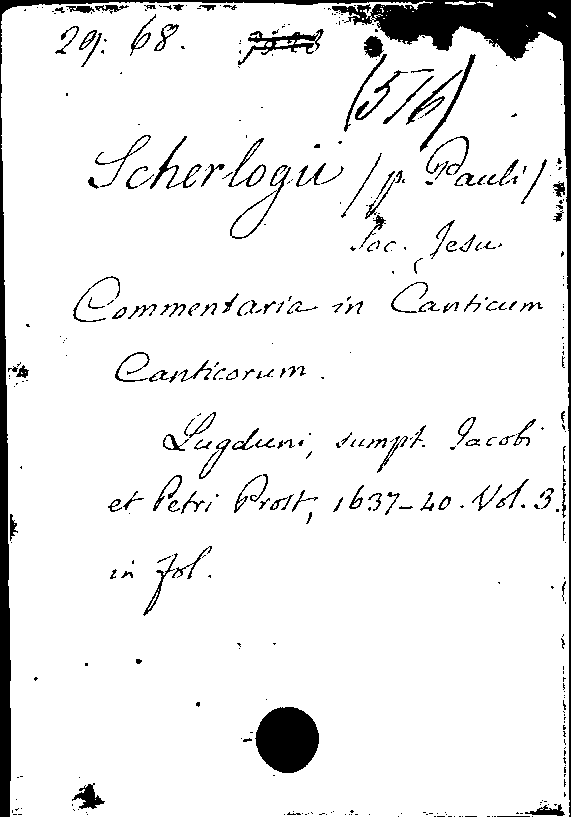 29: 68.
(516)
Scherlogii / p. Pauli /
Soc. Jesu
Commentaria in Canticum
Canticorum.
Lugduni, sumpt. Jacobi
et Petri Prost, 1637-40. Vol. 3.
in fol.